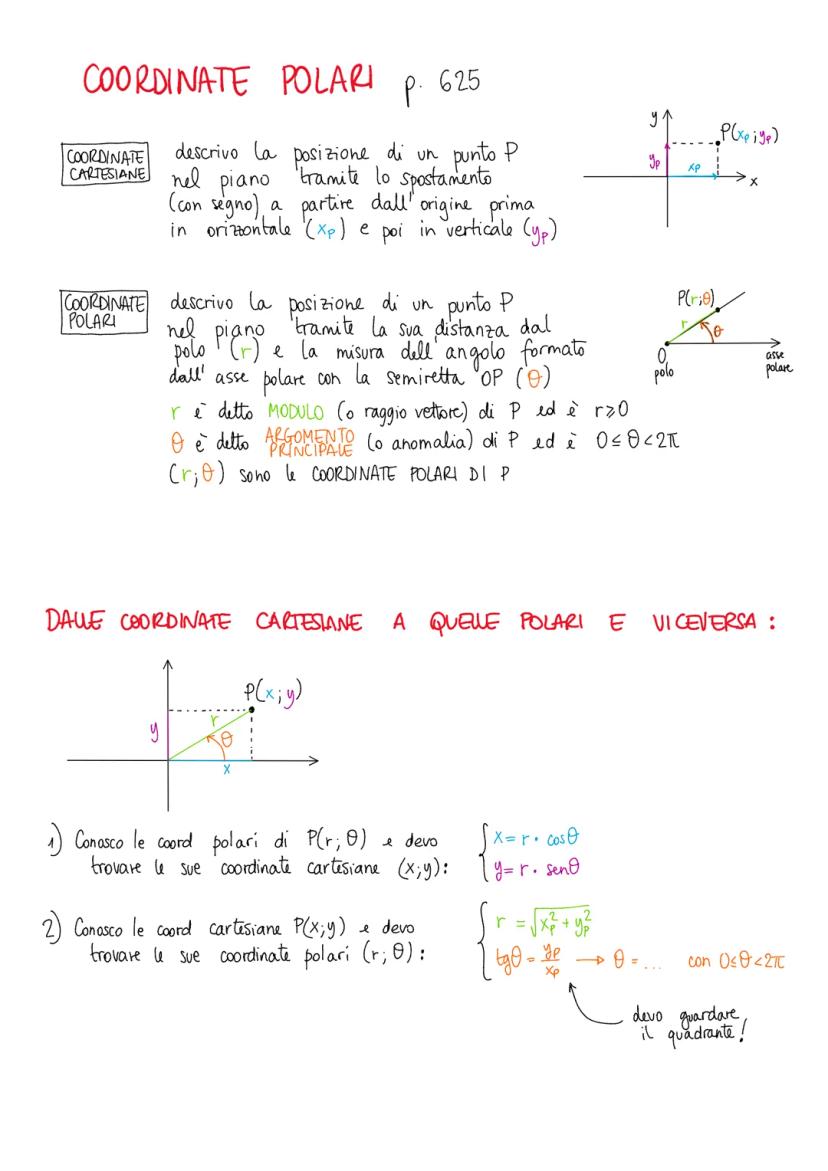 COORDINATE POLARI p. 625
COORDINATE
CARTESIANE
descrivo la posizione di un punto P
nel piano tramite lo spostamento
(con segno) a partire dall'origine prima
in orizzontale (xₚ) e poi in verticale (yₚ)
y
P(xₚ; yₚ)
yₚ
xₚ
x
COORDINATE
POLARI
descrivo la posizione di un punto P
nel piano tramite la sua distanza dal
polo (r) e la misura dell'angolo formato
dall'asse polare con la semiretta OP (θ)
r è detto MODULO (o raggio vettore) di P ed è r⩾0
θ è detto ARGOMENTO PRINCIPALE (o anomalia) di P ed è 0≤θ<2π
(r;θ) sono le COORDINATE POLARI DI P
P(r;θ)
r
θ
O
polo
asse
polare
DALLE COORDINATE CARTESIANE A QUELLE POLARI E VICEVERSA:
P(x; y)
y
r
θ
x
1) Conosco le coord polari di P(r; θ) e devo
trovare le sue coordinate cartesiane (x;y):
x= r· cosθ
y= r· senθ
2) Conosco le coord cartesiane P(x;y) e devo
trovare le sue coordinate polari (r; θ):
r = √(xₚ² + yₚ²)
tgθ = yₚ/xₚ → θ = ... con 0≤θ<2π
devo guardare
il quadrante!